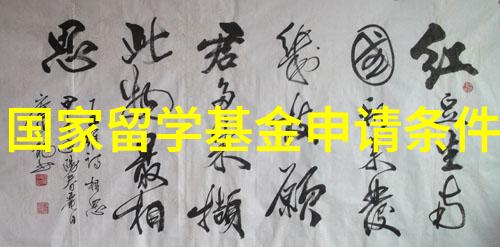 国家留学基金申请条件
红豆生南
國春来發
幾枝願
君多采撷
此物最相
思